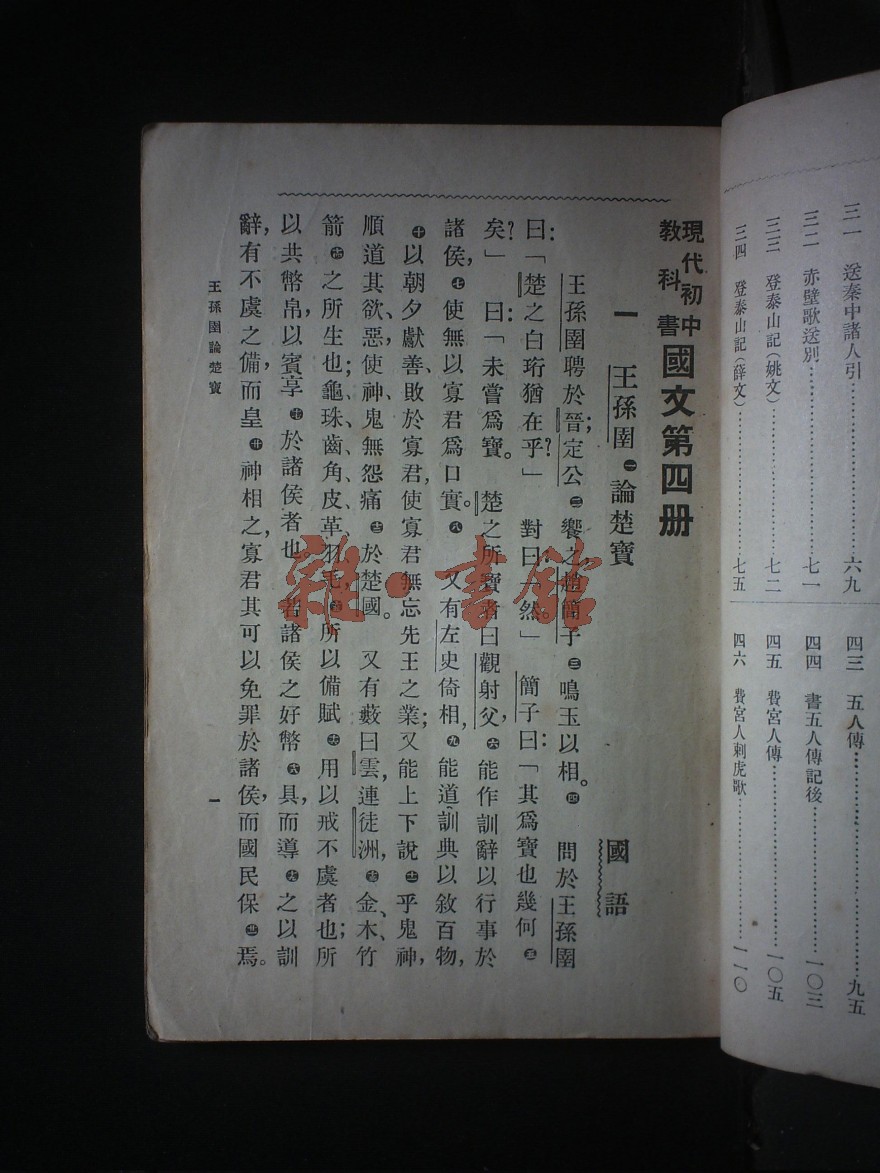 三一　送秦中諸人引……………………六九
三二　赤壁歌送別……………………七一
三三　登泰山記(姚文)……………………七二
三四　登泰山記(薛文)……………………七五
四三　五人傳……………………九五
四四　書五人傳記後……………………一〇三
四五　費宮人傳……………………一〇五
四六　費宮人刺虎歌……………………一一〇
現代初中
教科書
國文第四册
一　王孫圉㊀論楚寶
國語
王孫圉聘於晉；定公㊁饗之，趙簡子㊂鳴玉以相。㊃　問於王孫圉
曰：「楚之白珩猶在乎？」　對曰：「然。」　簡子曰：「其爲寶也幾何㊄
矣？」　曰：「未嘗爲寶。　楚之所寶者曰觀射父，㊅能作訓辭以行事於
諸侯，㊆使無以寡君爲口實。㊇　又有左史倚相，㊈能道訓典以敘百物，
㊉以朝夕獻善、敗於寡君，使寡君無忘先王之業；又能上下說(十一)乎鬼神，
順道其欲、惡，使神鬼無怨痛(十二)於楚國。　又有藪曰雲，連徒洲，(十三)金、木、竹
箭(十四)之所生也；龜、珠、齒、角、皮、革、羽、毛，(十五)所以備賦(十六)用以戒不虞者也；所
以共幣帛，以賓享(十七)於諸侯者也。　若諸侯之好幣(十八)具，而導(十九)之以訓
辭，有不虞之備，而皇(二十)神相之，寡君其可以免罪於諸侯，而國民保(二一)焉。
王孫圉論楚寶
一
雜·書館